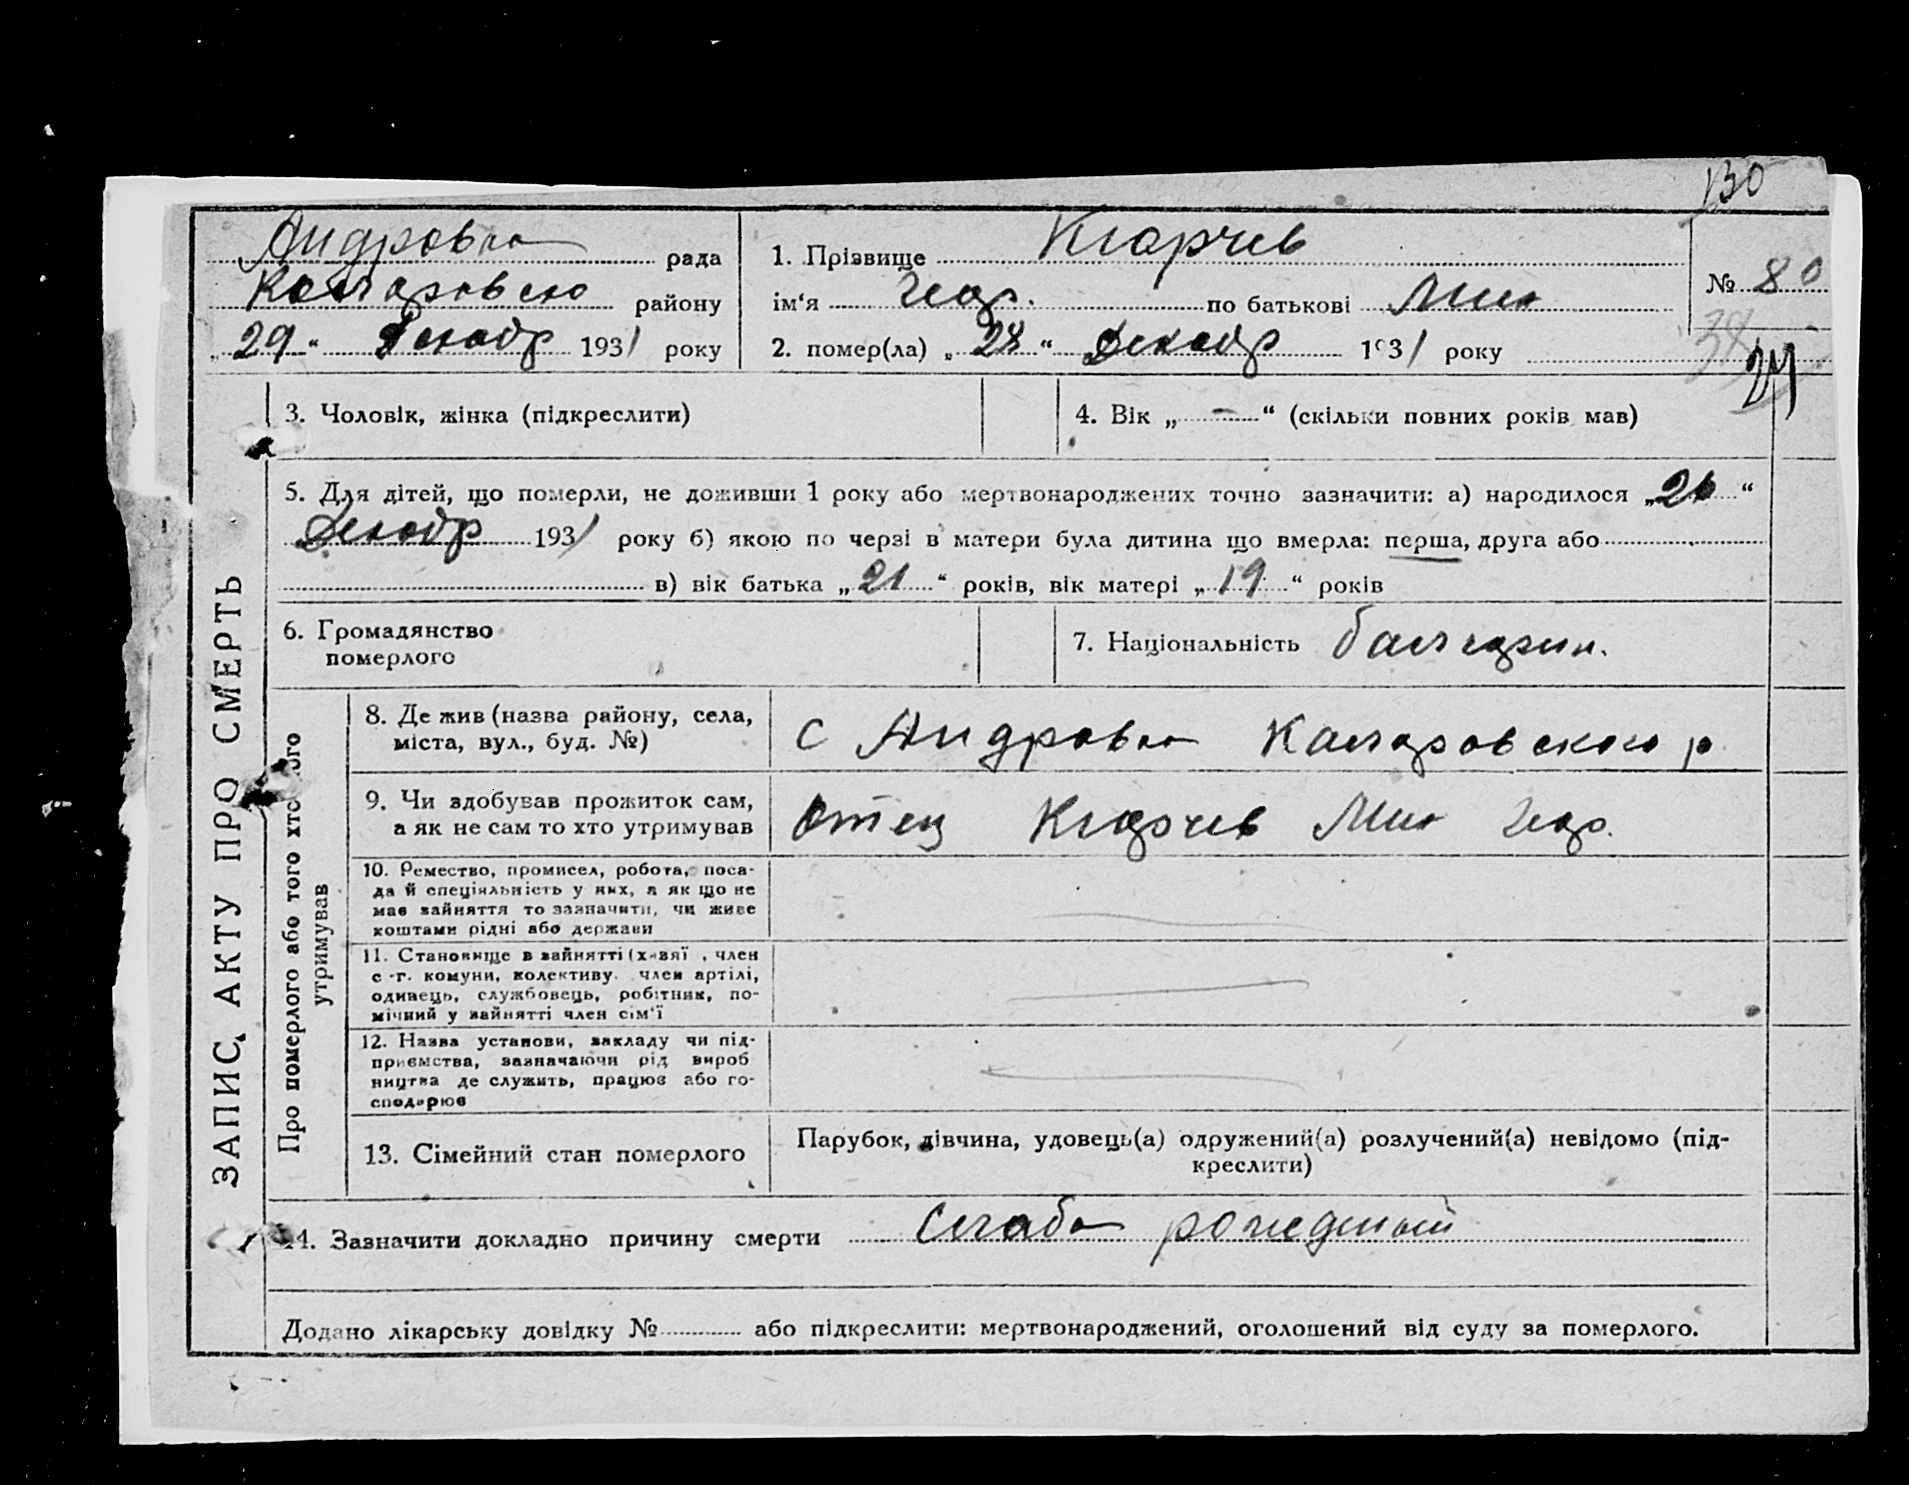 130
Андровка рада
Коларовского району
„29“ Декабр 1931 року
1. Прізвище Кюрчев
ім‘я Геор. по батькові Мин
2. помер(ла) „28“ Декабр 1931 року
№ 80
38
24
ЗАПИС АКТУ ПРО СМЕРТЬ
3. Чоловік, жінка (підкреслити)
4. Вік „ – “ (скільки повних років мав)
5. Для дітей, що померли, не доживши 1 року або мертвонароджених точно зазначити: а) народилося „26“
Декабр 1931 року б) якою по черзі в матери була дитина що вмерла: перша, друга або
в) вік батька „21“ років, вік матері „19“ років
6. Громадянство
померлого
7. Національність болгарин.
Про померлого або того хто його
утримував
8. Де жив (назва району, села,
міста, вул., буд. №)
с Андровка Коларовского р
9. Чи здобував прожиток сам,
а як не сам то хто утримував
Отец Кюрчев Мин Геор.
10. Ремество, промисел, робота, поса-
да й спеціяльність у них, а як що не
має зайняття то зазначити, чи живе
коштами рідні або держави
11. Становище в зайнятті (х-зяї , член
с-г. комуни, колективу. член артілі,
одинець, службовець, робітник, по-
мічний у зайнятті член сім‘ї
12. Назва установи, закладу чи під-
приємства, зазначаючи рід вироб
ництва де служить, працює або го-
сподарює
13. Сімейний стан померлого
Парубок, дівчина, удовець(а) одружений(а) розлучений(а) невідомо (під-
креслити)
14. Зазначити докладно причину смерти слабо
Додано лікарську довідку № або підкреслити: мертвонароджений, оголошений від суду за померлого.